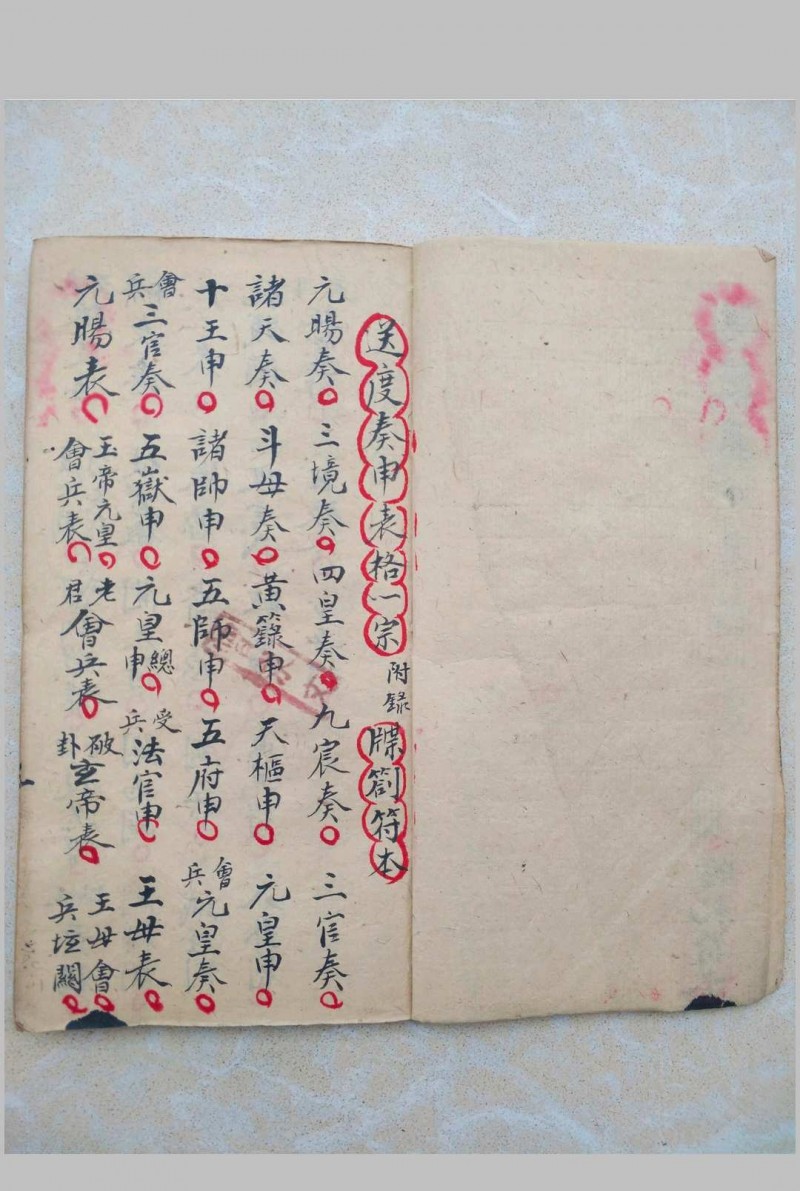 送度奏申表格一宗 附錄 牒劄符本
元陽奏 三境奏 四皇奏 九宸奏 三官奏
諸天奏 斗母奏 黃籙申 天樞申 元皇申
十王申 諸帥申 五師申 五府申 會兵元皇奏
會兵三官奏 五嶽申 元皇總申 受兵法官申 王母表
元陽表 玉帝元皇會兵表 老君會兵表 破卦玄帝表 王母會兵垣關